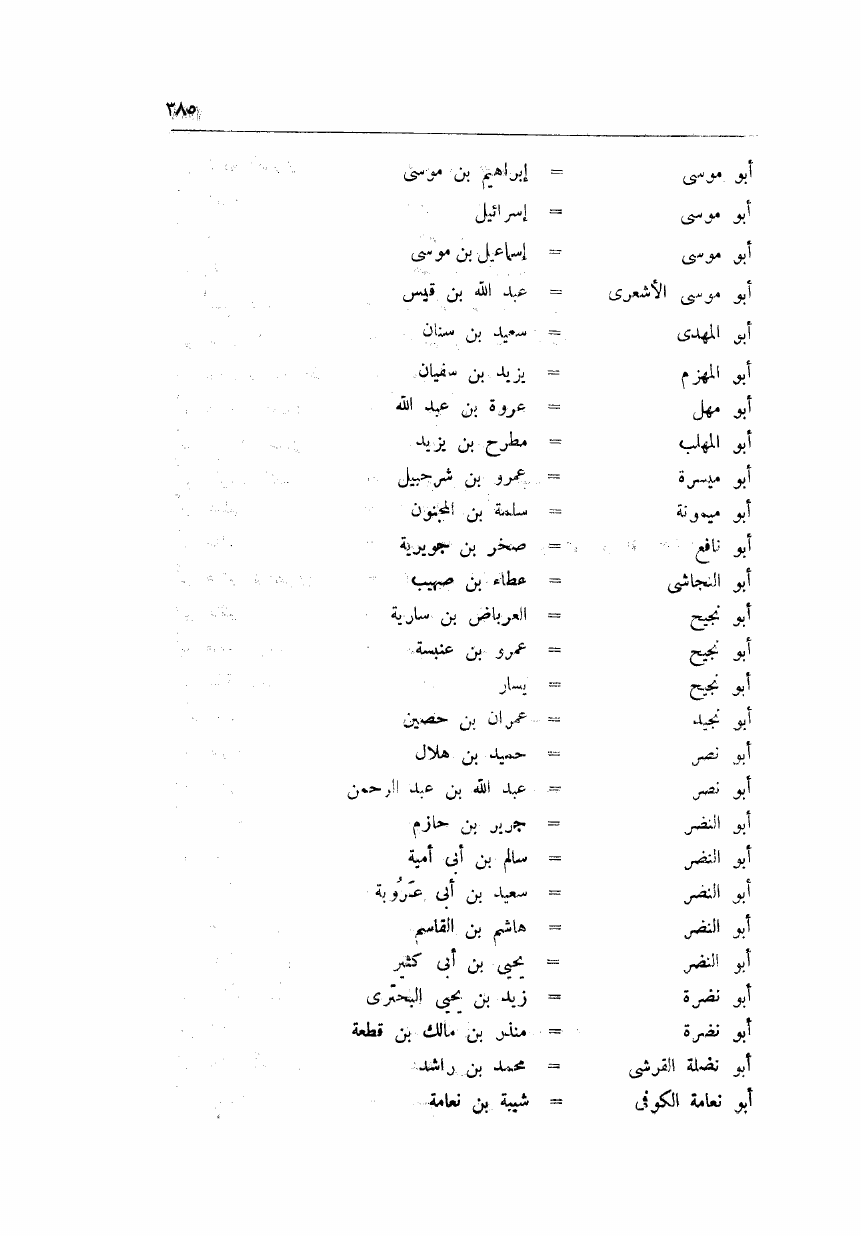 ٣٨٥
أبو موسى = إبراهيم بن موسى
أبو موسى = إسرائيل
أبو موسى = إسماعيل بن موسى
أبو موسى الأشعرى = عبد الله بن قيس
أبو المهدى = سعيد بن سنان
أبو المهزم = يزيد بن سفيان
أبو مهل = عروة بن عبد الله
أبو المهلب = مطرح بن يزيد
أبو ميسرة = عمرو بن شرحبيل
أبو ميمونة = سلمة بن المجنون
أبو نافع = صخر بن جويرية
أبو النجاشى = عطاء بن صهيب
أبو نجيح = العرباض بن سارية
أبو نجيح = عمرو بن عنبسة
أبو نجيح = يسار
أبو نجيد = عمران بن حصين
أبو نصر = حميد بن هلال
أبو نصر = عبد الله بن عبد الرحمن
أبو النضر = جرير بن حازم
أبو النضر = سالم بن أبى أمية
أبو النضر = سعيد بن أبى عَرُوبة
أبو النضر = هاشم بن القاسم
أبو النضر = يحيى بن أبى كثير
أبو نضرة = زيد بن يحيى البحترى
أبو نضرة = منذر بن مالك بن قطعة
أبو نضلة القرشى = محمد بن راشد
أبو نعامة الكوفى = شيبة بن نعامة